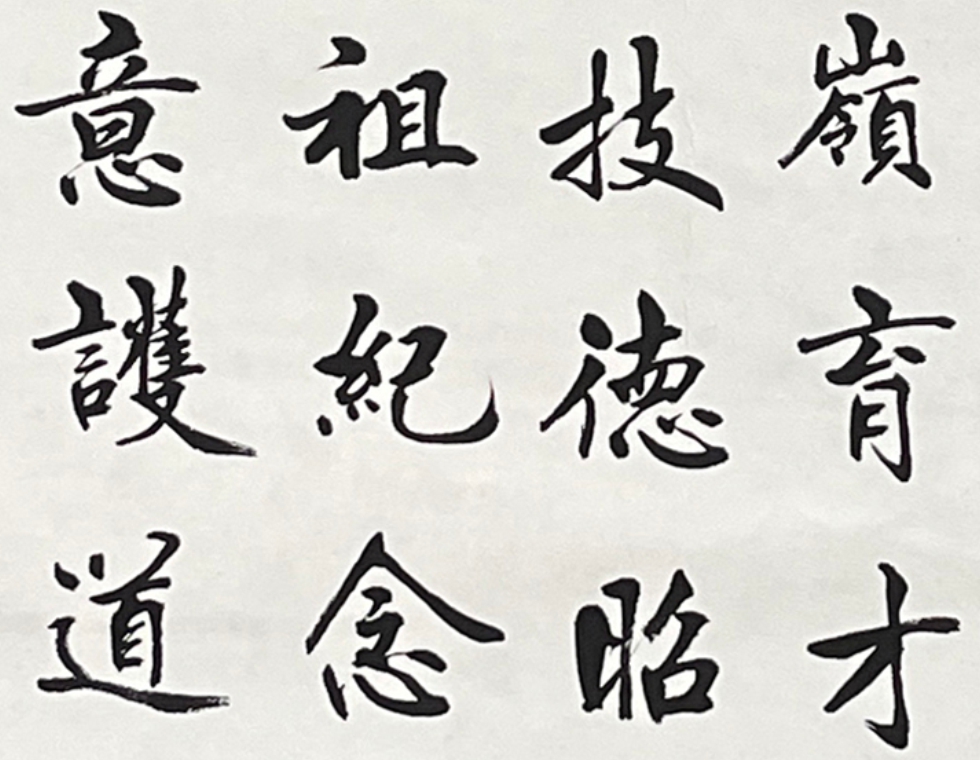 嶺育才
技德昭
祖紀念
意護道